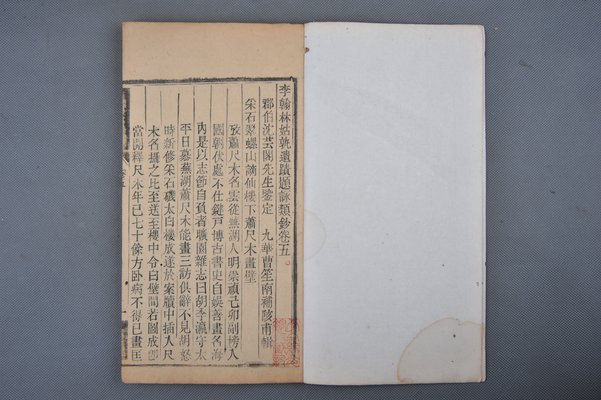 李翰林姑孰遺蹟題詠類鈔卷五
郡伯沈芸閣先生鑒定　九華曹笙南補陔甫輯
采石翠螺山謫仙樓下蕭尺木畫壁
攷蕭尺木名雲從蕪湖人明崇禎己卯副榜人
國朝伏處不仕鍵戸博古書史自娛善畫名海
內是以志節自負者曠園雜志曰胡季瀛守太
平日慕蕪湖蕭尺木能畫三訪俱辭不見胡怒
時新修采石磯太白樓成遂於案牘中插入尺
木名攝之比至送至樓中令白壁間若圖成卽
當開釋尺木年已七十餘方臥病不得已畫匡